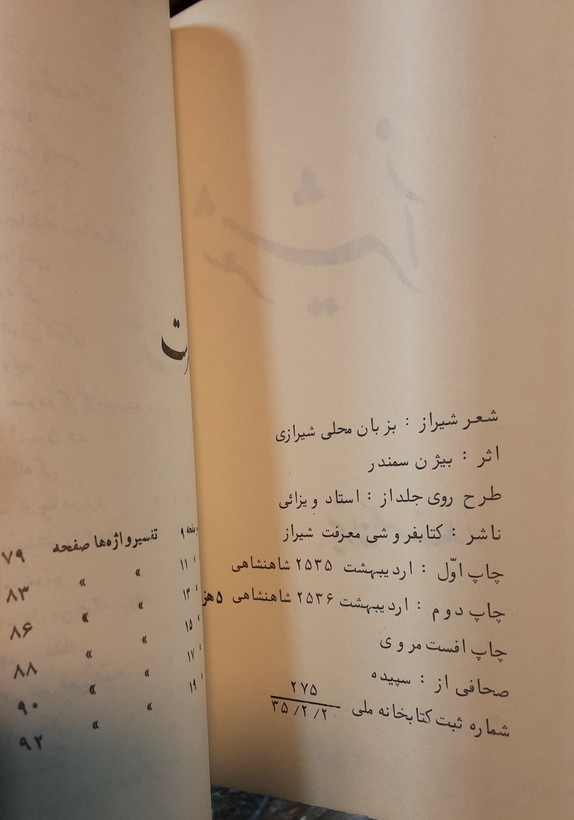 شعر شیراز : بزبان محلی شیرازی
اثر : بیژن سمندر
طرح روی جلداز : استاد ویزائی
ناشر : کتابفروشی معرفت شیراز
چاپ اوّل : اردیبهشت ۲۵۳۵ شاهنشاهی
چاپ دوم : اردیبهشت ۲۵۳۶ شاهنشاهی ۵هز
چاپ افست مروی
صحافی از : سپیده
شماره ثبت کتابخانه ملی ۲۷۵
۳۵/۲/۲۰
صفحه ۹ تفسیر واژه‌ها صفحه ۷۹
۱۱ » » ۸۳
۱۳ » » ۸۶
۱۵ » » ۸۸
۱۷ » » ۹۰
۱۹ » » ۹۲